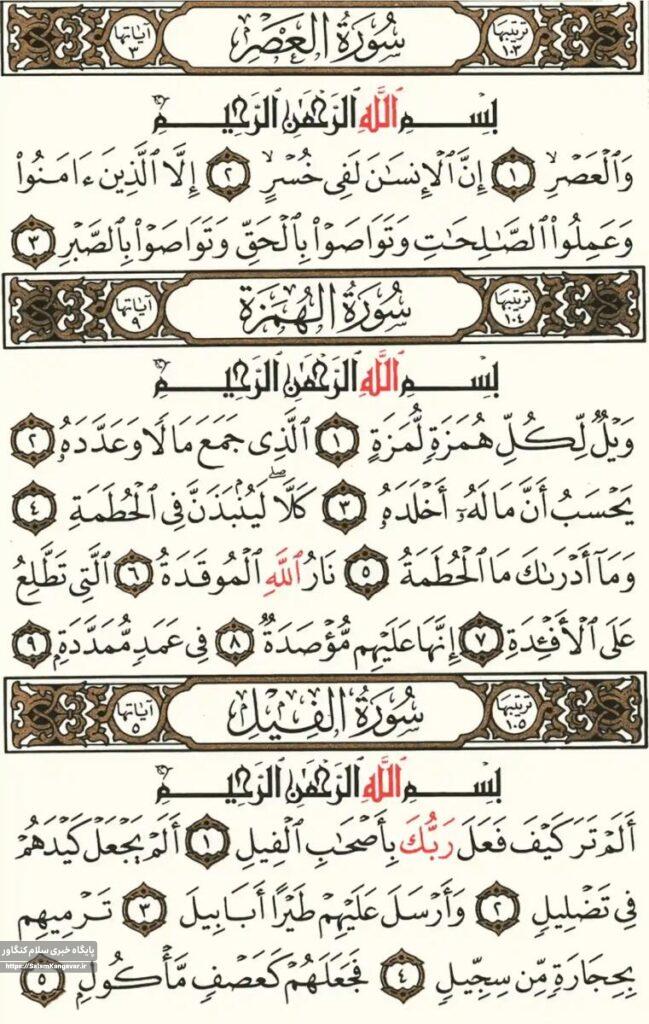 ترتيبها ١٠٣ سُورَةُ العَصْرِ آياتها ٣
بِسْمِ ٱللَّهِ ٱلرَّحْمَٰنِ ٱلرَّحِيمِ
وَٱلْعَصْرِ ١ إِنَّ ٱلْإِنسَـٰنَ لَفِى خُسْرٍ ٢ إِلَّا ٱلَّذِينَ ءَامَنُوا۟
وَعَمِلُوا۟ ٱلصَّـٰلِحَـٰتِ وَتَوَاصَوْا۟ بِٱلْحَقِّ وَتَوَاصَوْا۟ بِٱلصَّبْرِ ٣
ترتيبها ١٠٤ سُورَةُ الهُمَزَةِ آياتها ٩
بِسْمِ ٱللَّهِ ٱلرَّحْمَٰنِ ٱلرَّحِيمِ
وَيْلٌ لِّكُلِّ هُمَزَةٍ لُّمَزَةٍ ١ ٱلَّذِى جَمَعَ مَالًا وَعَدَّدَهُۥ ٢
يَحْسَبُ أَنَّ مَالَهُۥٓ أَخْلَدَهُۥ ٣ كَلَّا ۖ لَيُنۢبَذَنَّ فِى ٱلْحُطَمَةِ ٤
وَمَآ أَدْرَىٰكَ مَا ٱلْحُطَمَةُ ٥ نَارُ ٱللَّهِ ٱلْمُوقَدَةُ ٦ ٱلَّتِى تَطَّلِعُ
عَلَى ٱلْأَفْـِٔدَةِ ٧ إِنَّهَا عَلَيْهِم مُّؤْصَدَةٌ ٨ فِى عَمَدٍ مُّمَدَّدَةٍۭ ٩
ترتيبها ١٠٥ سُورَةُ الفِيلِ آياتها ٥
بِسْمِ ٱللَّهِ ٱلرَّحْمَٰنِ ٱلرَّحِيمِ
أَلَمْ تَرَ كَيْفَ فَعَلَ رَبُّكَ بِأَصْحَـٰبِ ٱلْفِيلِ ١ أَلَمْ يَجْعَلْ كَيْدَهُمْ
فِى تَضْلِيلٍ ٢ وَأَرْسَلَ عَلَيْهِمْ طَيْرًا أَبَابِيلَ ٣ تَرْمِيهِم
بِحِجَارَةٍ مِّن سِجِّيلٍ ٤ فَجَعَلَهُمْ كَعَصْفٍ مَّأْكُولٍۭ ٥
پایگاه خبری سلام کنگاور
https://SalamKangavar.ir